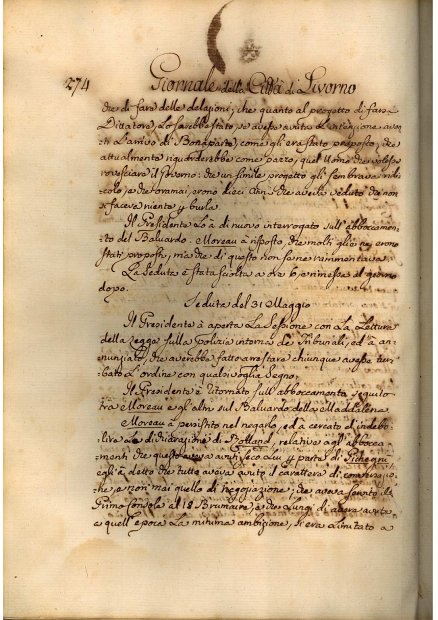 274 Giornale della Città di Livorno
die di fare delle delazioni; che quanto al progetto di farsi
Dittatore, Lo sarebbe stato, se avesse avuto L'intenzione avan
ti L'arrivo di Bonaparte, come gli era stato proposto, che
attualmente riguarderebbe come pazzo, quel Uomo che volesse
rovesciare il governo: che un simile progetto gli sembrava ridi
colo, e che oramai, erono dieci Anni, che aveva veduto che non
si faceva niente p burla.
Il Presidente Lo à di nuovo interrogato sull'abboccamen
to del Baluardo. Moreau à risposto, che molti glie ne erono
stati proposti, mà che di questo non se ne rammentava.
La Seduta è stata sciolta a ore 6, e rimessa al giorno
dopo.
Seduta del 31 Maggio
Il Presidente à aperta La Sessione con La Lettura
della Legge sulla Polizia interna de Tribunali, ed à an
nunziato, che averebbe fatto arrestare chiunque avesse tur
bato L'ordine con qualsivoglia Segno.
Il Presidente è ritornato sull'abboccamento seguito
trà Moreau e gl'altri sul Baluardo della Maddalena
Moreau à persistito nel negarlo, ed à cercato d'indebo
lire La dichiarazione di Rolland, relativa agli abbocca
menti che questo aveva avuti seco Lui p parte di Pichegru
egli à detto che tutto aveva avuto il carattere di
e non mai quello di negoziazione; che aveva servito il
Primo Console al 18 Brumaire, e che Lungi di avere avuta
a quell'epoca La minima ambizione, si era Limitato a